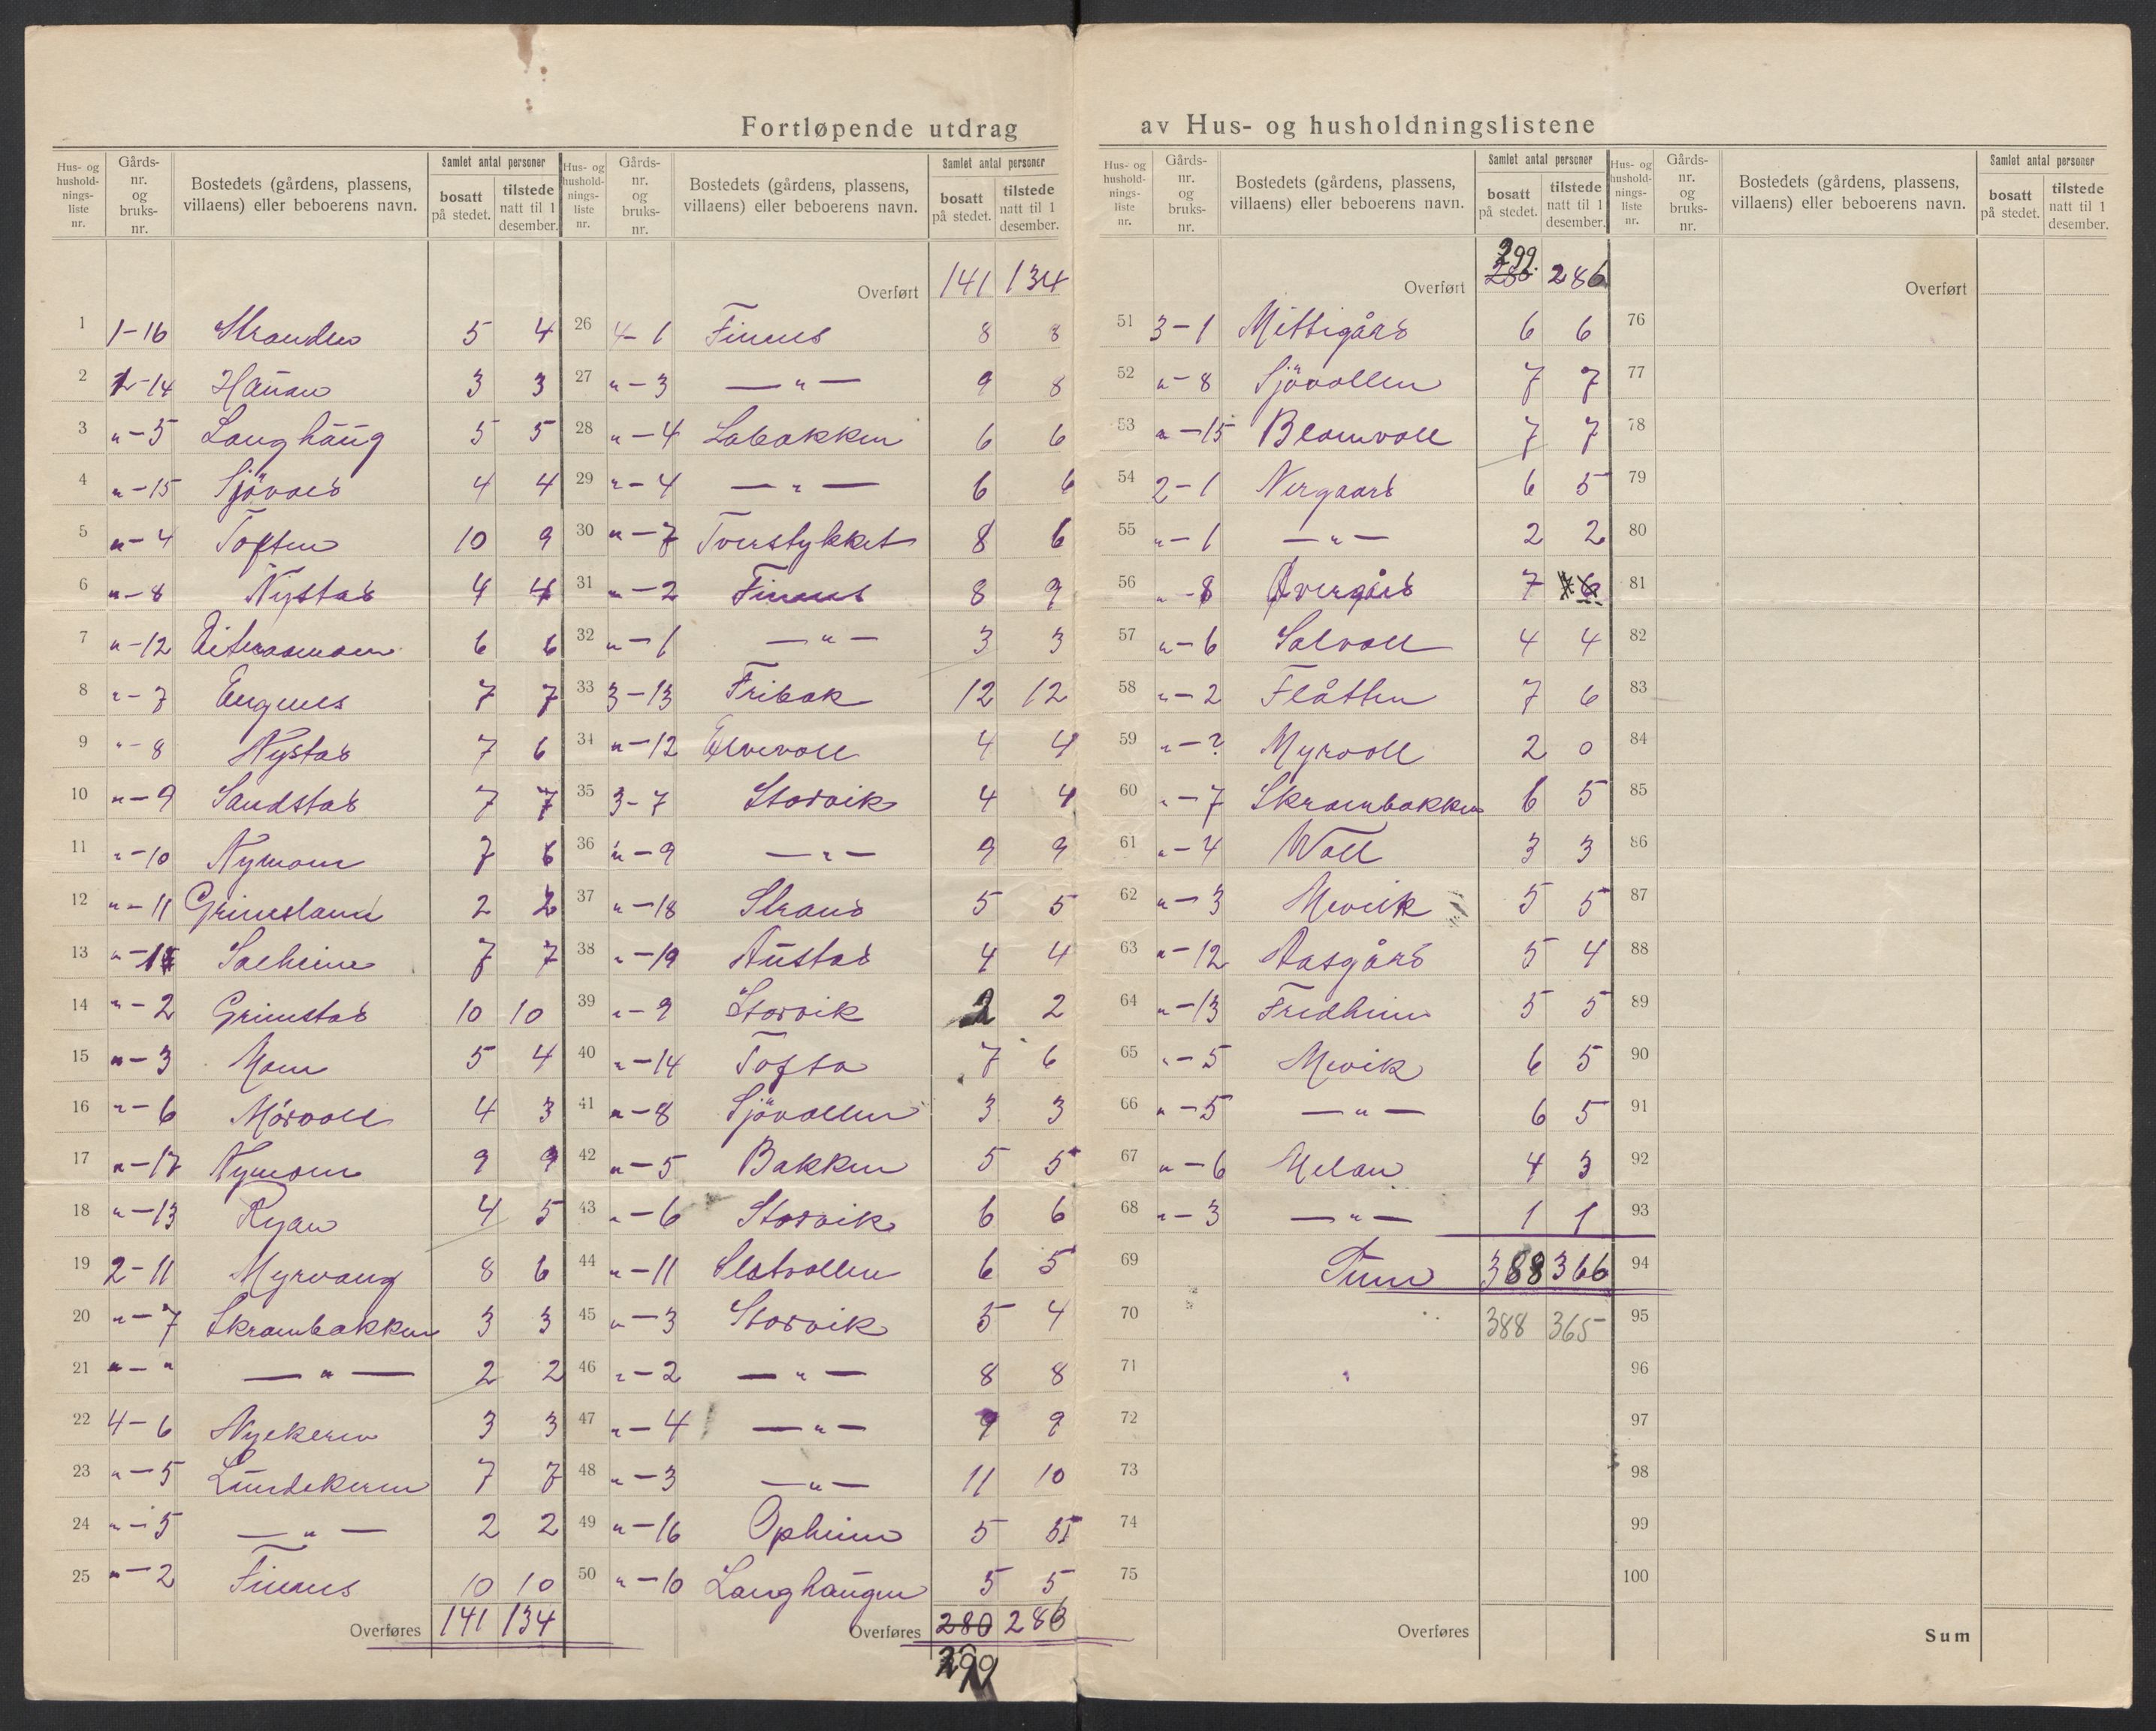 Fortløpende utdrag av Hus- og husholdningslistene
Hus- og husholdnings-liste nr. | Gårds-nr. og bruks-nr. | Bostedets (gårdens, plassens, villaens) eller beboerens navn. | Samlet antal personer bosatt på stedet. | tilstede natt til 1 desember.
1 1-16 Stranden 5 4
2 1-14 Haugan 3 3
3 "-5 Langhaug 5 5
4 "-15 Sjövold 4 4
5 "-4 Toften 10 9
6 "-8 Nystad 4 4
7 "-12 6 6
8 "-7 Engnes 7 7
9 "-8 Nystad 7 6
10 "-9 Sandstad 7 7
11 "-10 Nymoen 7 6
12 "-11 Grimsland 2 2
13 Solheim 7 7
14 "-2 Grimstad 10 10
15 "-3 Moen 5 4
16 "-6 Móvoll 4 3
17 "-17 Nymoen 9 9
18 "-13 Ryan 4 5
19 2-11 Myrvang 8 6
20 "-7 Skrambakken 3 3
21 "-" — " — 2 2
22 4-6 Nyekeren 3 3
23 "-5 Lundekeren 7 7
24 "-5 — " — 2 2
25 "-2 Finnes 10 10
Overføres 141 134
Hus- og husholdnings-liste nr. | Gårds-nr. og bruks-nr. | Bostedets (gårdens, plassens, villaens) eller beboerens navn. | Samlet antal personer bosatt på stedet. | tilstede natt til 1 desember.
Overført 141 134
26 4-1 Finnes 8 8
27 "-3 — " — 9 8
28 "-4 Labakken 6 6
29 "-4 — " — 6 6
30 "-7 Tverstykket 8 6
31 "-2 Finnes 8 9
32 "-1 — " — 3 3
33 3-13 Fribak 12 12
34 "-12 Elvevoll 4 4
35 3-7 Storvik 4 4
36 "-9 — " — 9 9
37 "-18 Strand 5 5
38 "-19 Austad 4 4
39 "-9 Storvik 2 2
40 "-14 Tofta 7 6
41 "-8 Sjövollen 3 3
42 "-5 Bakken 5 5
43 "-6 Storvik 6 6
44 "-11 Slotvollen 6 5
45 "-3 Storvik 5 4
46 "-2 — " — 8 8
47 "-4 — " — 9 9
48 "-3 — " — 11 10
49 "-16 Opheim 5 5
50 "-10 Langhaugen 5 5
Overføres 280 286
299
Hus- og husholdnings-liste nr. | Gårds-nr. og bruks-nr. | Bostedets (gårdens, plassens, villaens) eller beboerens navn. | Samlet antal personer bosatt på stedet. | tilstede natt til 1 desember.
299.
Overført 280 286
51 3-1 Mittigård 6 6
52 "-8 Sjövollen 7 7
53 "-15 Blomvoll 7 7
54 2-1 Nergaard 6 5
55 "-1 — " — 2 2
56 "-8 Øvergård 7 6
57 "-6 Solvoll 4 4
58 "-2 Flåtten 7 6
59 "-? Myrvoll 2 0
60 "-7 Skrambakken 6 5
61 "-4 Woll 3 3
62 "-3 Mevik 5 5
63 "-12 Aasgård 5 4
64 "-13 Fredheim 5 5
65 "-5 Mevik 6 5
66 "-5 — " — 6 5
67 "-6 Melan 4 3
68 "-3 — " — 1 1
69 Sum 388 366
70 388 365
71
72
73
74
75
Overføres
Hus- og husholdnings-liste nr. | Gårds-nr. og bruks-nr. | Bostedets (gårdens, plassens, villaens) eller beboerens navn. | Samlet antal personer bosatt på stedet. | tilstede natt til 1 desember.
Overført
76
77
78
79
80
81
82
83
84
85
86
87
88
89
90
91
92
93
94
95
96
97
98
99
100
Sum